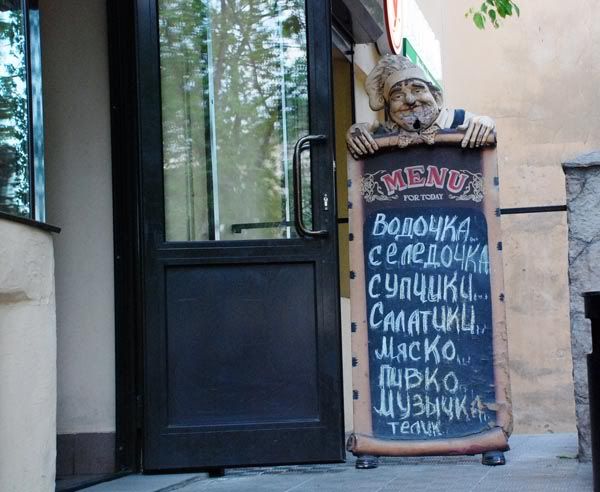 MENU
FOR TODAY
Водочка..
Селедочка
Супчики...
Салатики..
Мяско...
Пивко..
Музычка..
Телик..